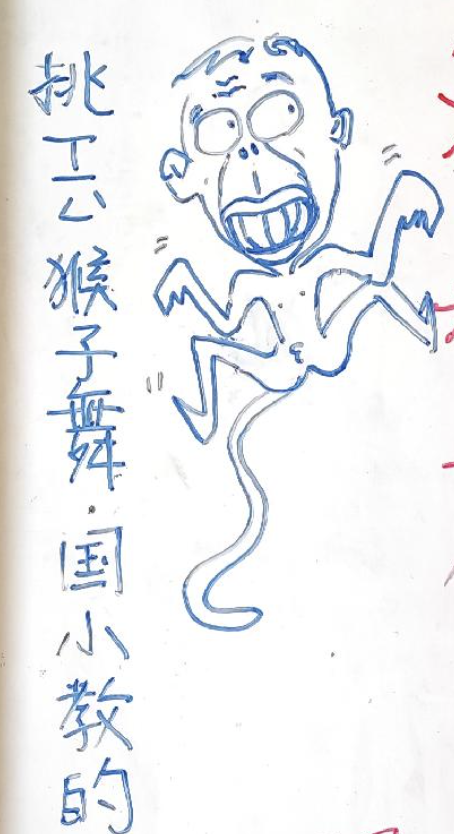 挑工厶猴子舞·国小教的